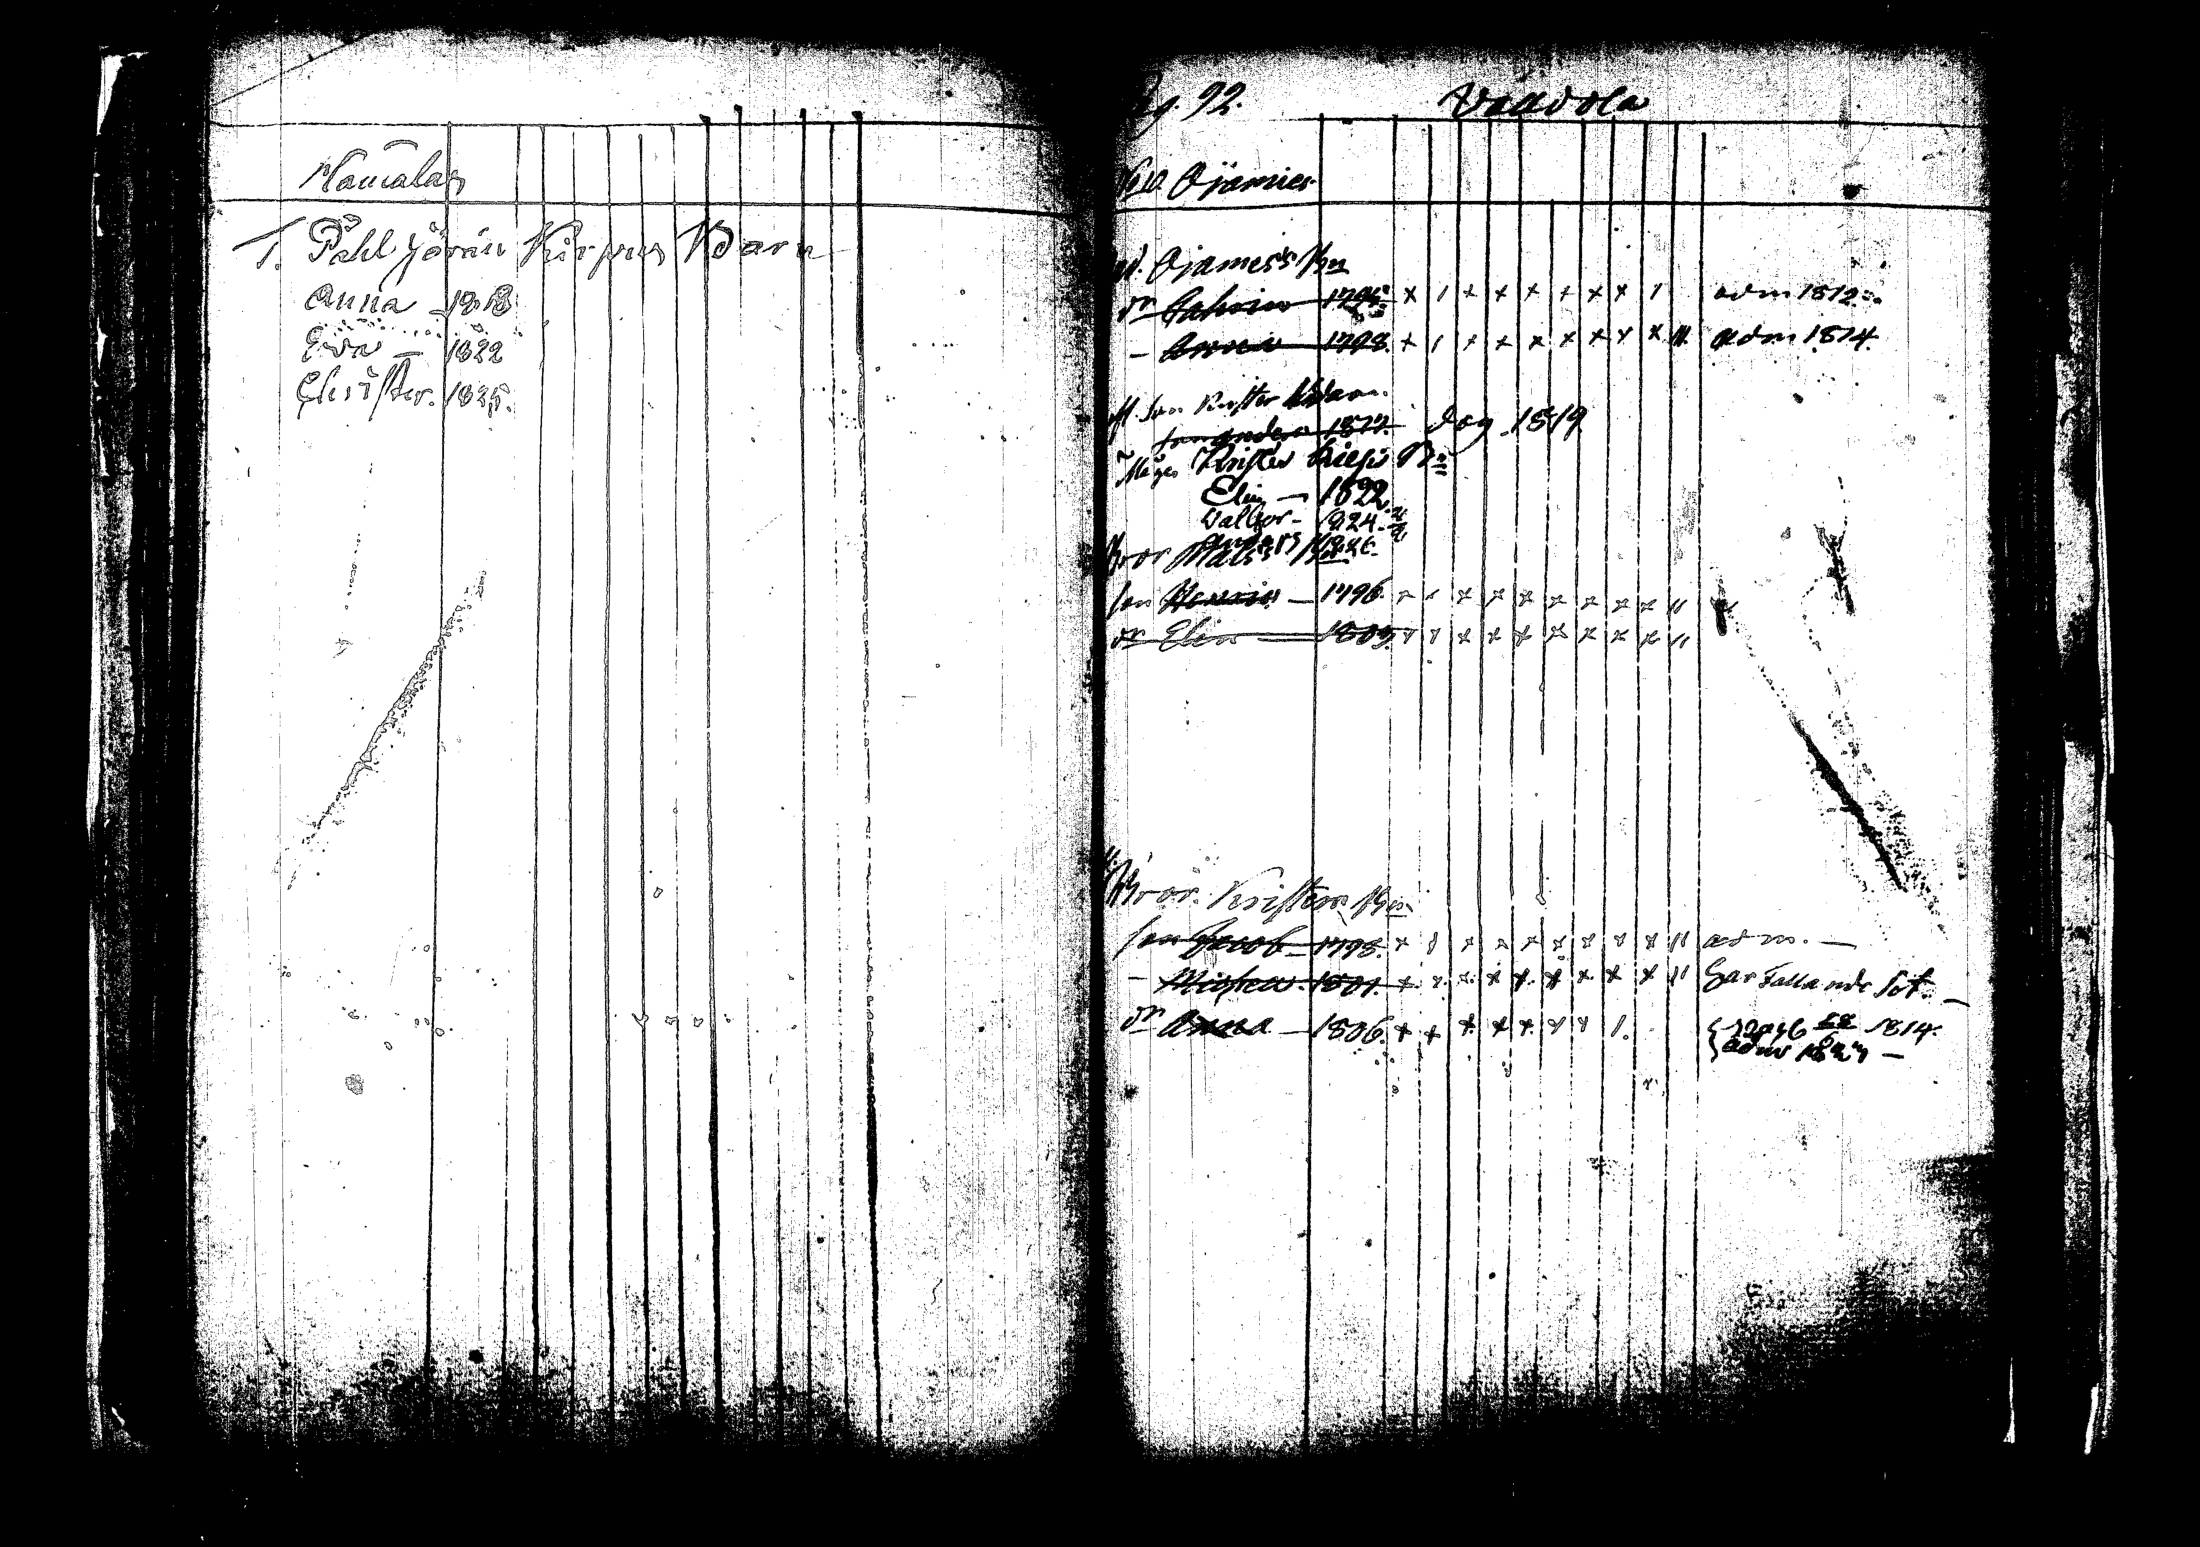 Hamalas
1. Påhl Jöran Kirpus Barn
Anna - 1818
Eva - 1822
Christer. 1825.
92. Valvola
No 10. Ojamies
Ojamess Bn
dr Cathrin 1795 x 1 x x x x x x 1 adm 1812
- Anna 1798. x 1 x x x x x x x 11 adm 1814.
son Krister
son Anders 1817. dog 1819
Mågen Krister Bn
Elin - 1822
Valbor - 1824.
Anders 1826.
Bror Mats Bn
son Henric - 1796. x x x x x x x x 11
dr Elin 1803. x x x x x x x 11
Bror. Kristers Bn
son Jacob - 1798. x 1 x x x x x x x 11 adm. -
- Michel. 1801. x x x x x x x 11 har fallande sot. -
dr Anna - 1806. x x x x x x x 1. 1814.
adm 1827 -